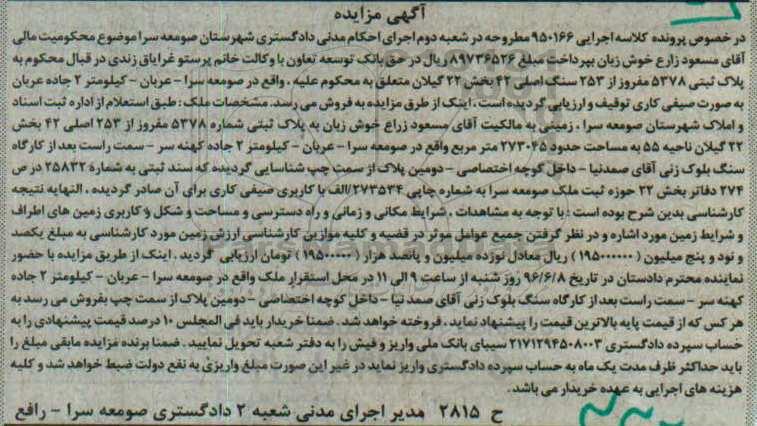 آگهی مزایده
در خصوص پرونده کلاسه اجرایی ۹۵۰۱۶۶ مطروحه در شعبه دوم اجرای احکام مدنی دادگستری شهرستان صومعه سرا موضوع محکومیت مالی
آقای مسعود زارع خوش زبان بپرداخت مبلغ ۸۹۷۳۶۵۲۶ ریال در حق بانک توسعه تعاون با وکالت خانم پرستو غرایاق زندی در قبال محکوم به
پلاک ثبتی ۵۳۷۸ مفروز از ۲۵۳ سنگ اصلی ۴۲ بخش ۲۲ گیلان متعلق به محکوم علیه . واقع در صومعه سرا - عربان - کیلومتر ۲ جاده عربان
به صورت صیفی کاری توقیف و ارزیابی گردیده است . اینک از طرق مزایده به فروش می رسد. مشخصات ملک : طبق استعلام از اداره ثبت اسناد
و املاک شهرستان صومعه سرا . زمینی به مالکیت آقای مسعود زراع خوش زبان به پلاک ثبتی شماره ۵۳۷۸ مفروز از ۲۵۳ اصلی ۴۲ بخش
۲۲ گیلان ناحیه ۵۵ به مساحت حدود ۲۷۳۰۴۵ متر مربع واقع در صومعه سرا - عربان - کیلومتر ۲ جاده کهنه سر - سمت راست بعد از کارگاه
سنگ بلوک زنی آقای صمدنیا - داخل کوچه اختصاصی - دومین پلاک از سمت چپ شناسایی گردیده که سند ثبتی به شماره ۲۵۸۳۲ در ص
۲۷۴ دفاتر بخش ۲۲ حوزه ثبت ملک صومعه سرا به شماره چاپی ۲۷۳۵۳۴/الف با کاربری صیفی کاری برای آن صادر گردیده . النهایه نتیجه
کارشناسی بدین شرح بوده است : با توجه به مشاهدات . شرایط مکانی و زمانی و راه دسترسی و مساحت و شکل و کاربری زمین های اطراف
و شرایط زمین مورد اشاره و در نظر گرفتن جمیع عوامل موثر در قضیه و کلیه موازین کارشناسی ارزش زمین مورد کارشناسی به مبلغ یکصد
و نود و پنج میلیون ( ۱۹۵۰۰۰۰۰۰ ) ریال معادل نوزده میلیون و پانصد هزار ( ۱۹۵۰۰۰۰۰ ) تومان ارزیابی گردید . اینک از طریق مزایده با حضور
نماینده محترم دادستان در تاریخ ۹۶/۶/۸ روز شنبه از ساعت ۹ الی ۱۱ در محل استقرار ملک واقع در صومعه سرا - عربان - کیلومتر ۲ جاده
کهنه سر - سمت راست بعد از کارگاه سنگ بلوک زنی آقای صمد نیا - داخل کوچه اختصاصی - دومین پلاک از سمت چپ بفروش می رسد به
هر کس که از قیمت پایه بالاترین قیمت را پیشنهاد نماید . فروخته خواهد شد . ضمنا خریدار باید فی المجلس ۱۰ درصد قیمت پیشنهادی را به
حساب سپرده دادگستری ۲۱۷۱۲۹۴۵۰۸۰۰۳ سیبای بانک ملی واریز و فیش را به دفتر شعبه تحویل نمایید . ضمنا برنده مزایده مابقی مبلغ را
باید حداکثر ظرف مدت یک ماه به حساب سپرده دادگستری واریز نماید در غیر این صورت مبلغ واریزی به نفع دولت ضبط خواهد شد و کلیه
هزینه های اجرایی به عهده خریدار می باشد .
ح ۲۸۱۵ مدیر اجرای مدنی شعبه ۲ دادگستری صومعه سرا - رافع